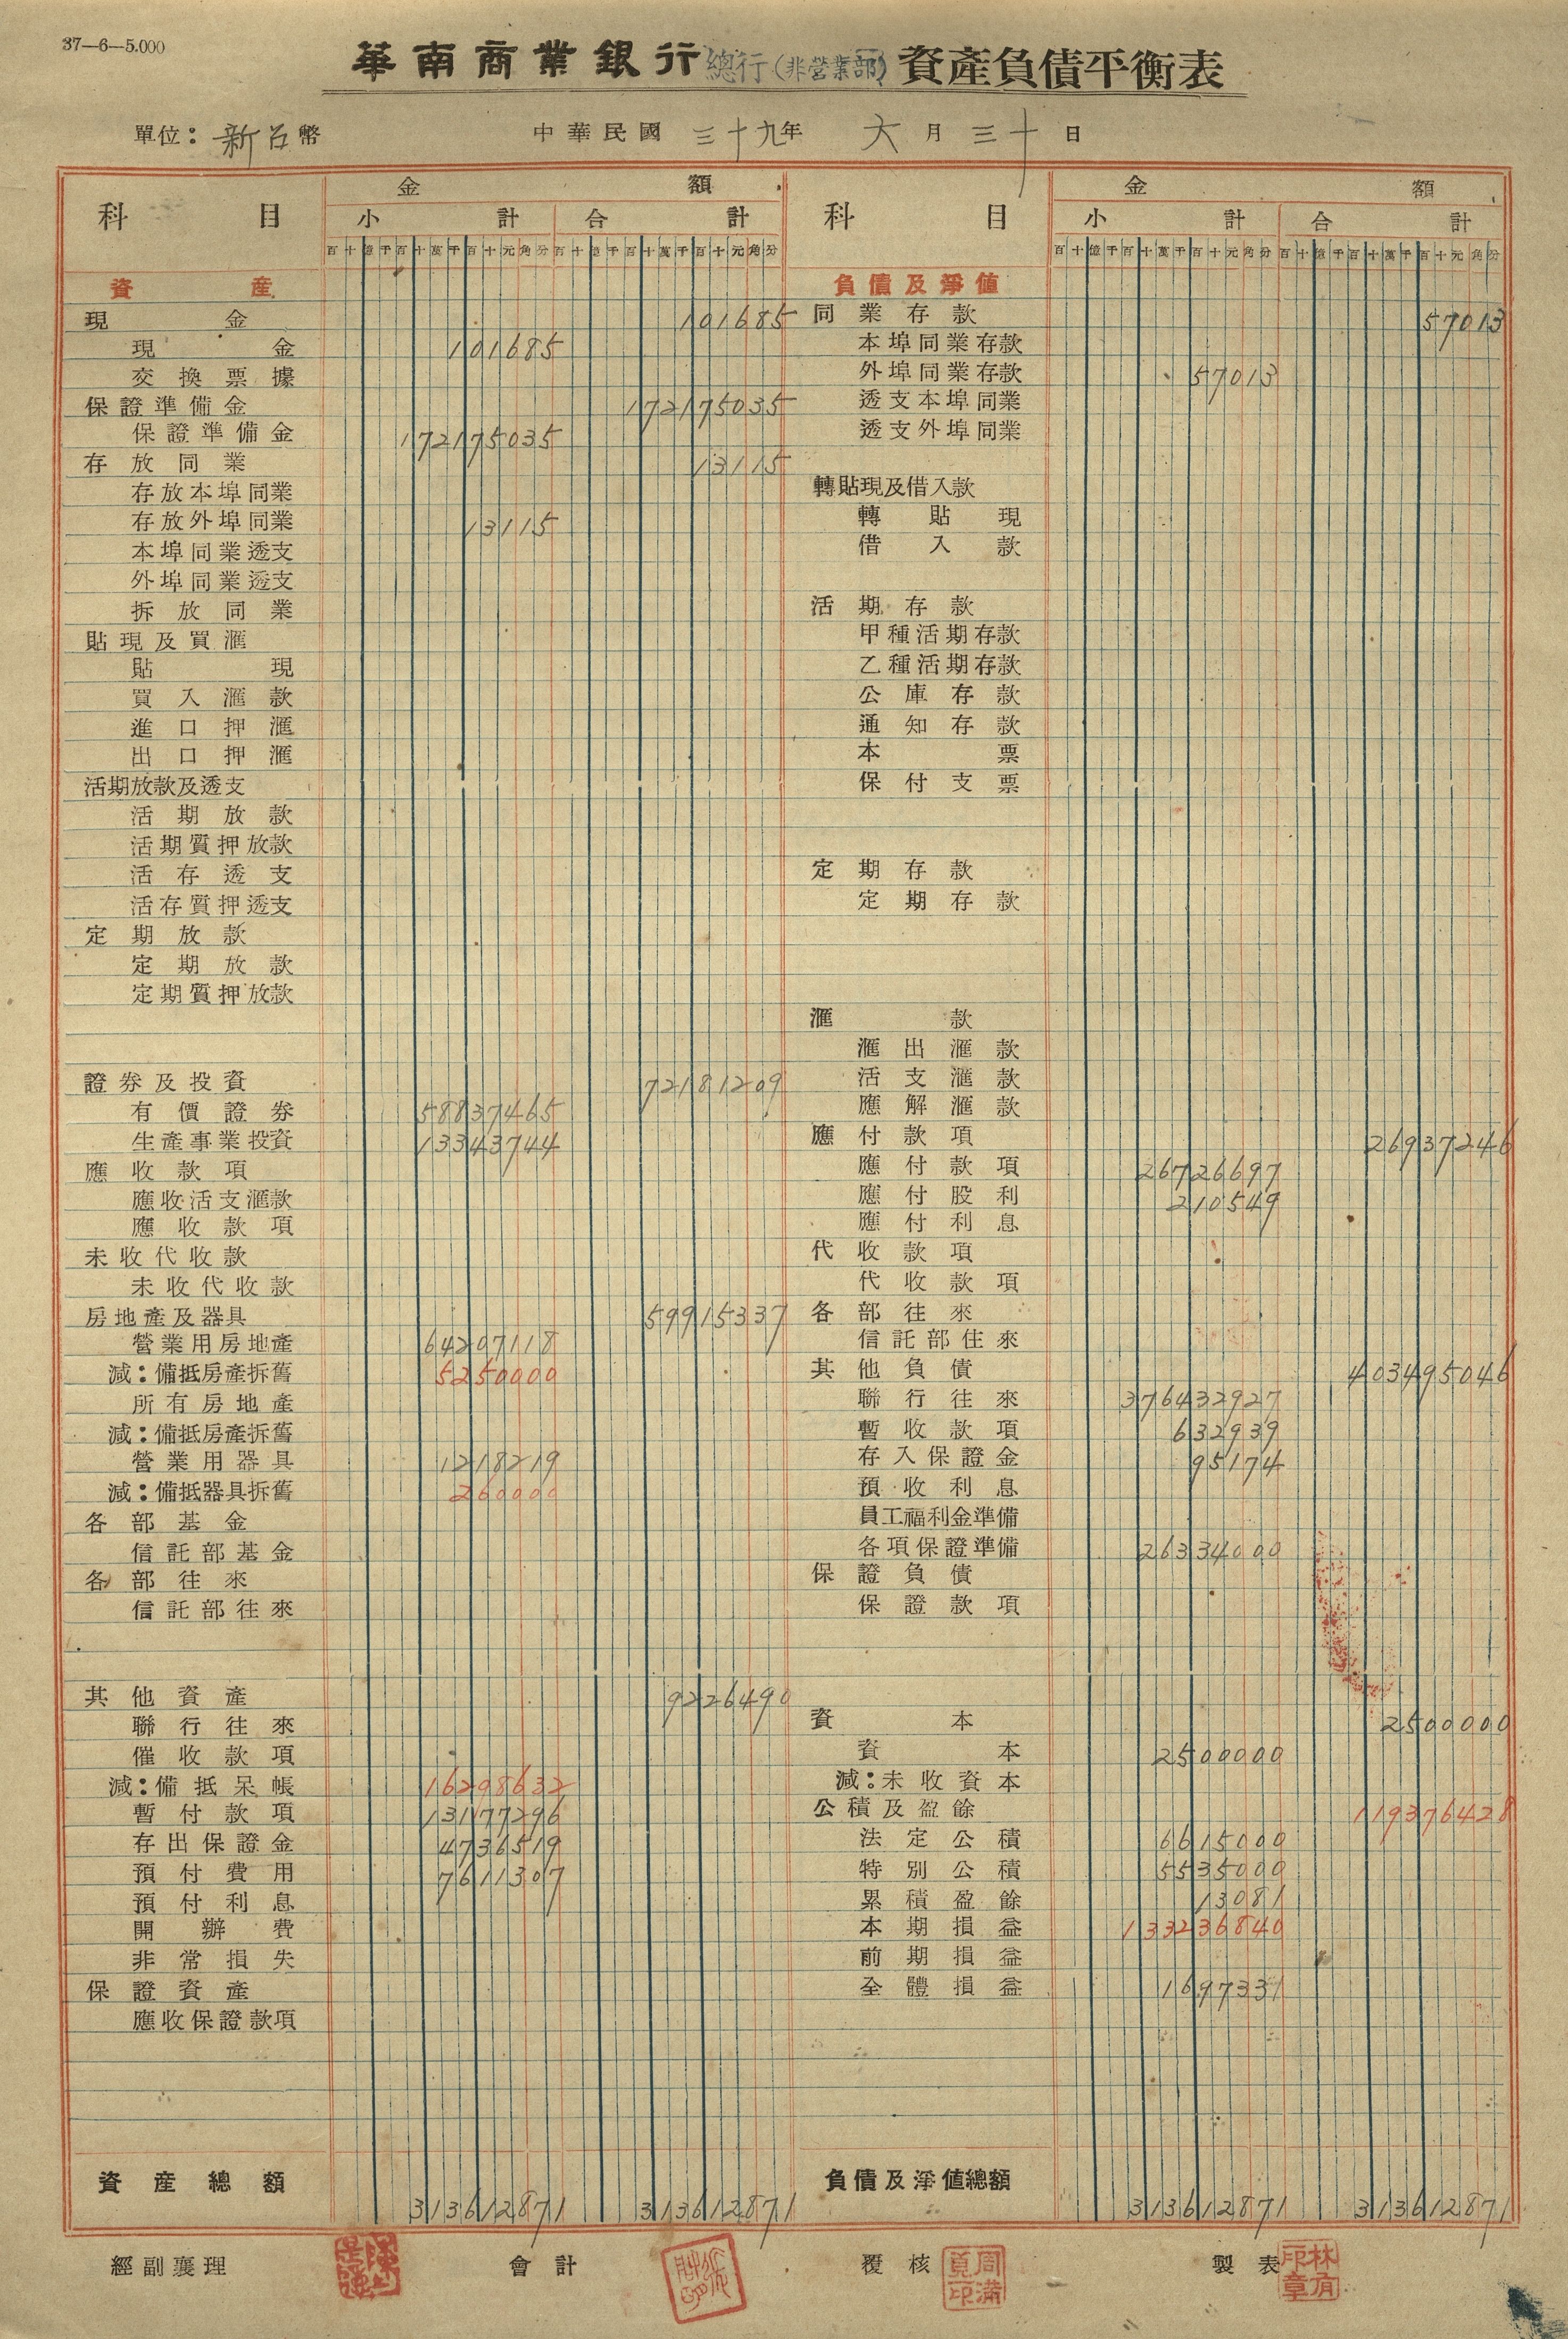 37—6—5.000
華南商業銀行總行(非營業部)資產負債平衡表
單位：新台幣 中華民國三十九年六月三十日
科目 金額 科目 金額
小計 合計 小計 合計
百十億千百十萬千百十元角分 百十億千百十萬千百十元角分 百十億千百十萬千百十元角分 百十億千百十萬千百十元角分
資產
現金 101685
現金 101685
交換票據
保證準備金 172175035
保證準備金 172175035
存放同業 13115
存放本埠同業
存放外埠同業 13115
本埠同業透支
外埠同業透支
拆放同業
貼現及買滙
貼現
買入滙款
進口押滙
出口押滙
活期放款及透支
活期放款
活期質押放款
活存透支
活存質押透支
定期放款
定期放款
定期質押放款
證券及投資 72181209
有價證券 58837465
生產事業投資 13343744
應收款項
應收活支滙款
應收款項
未收代收款
未收代收款
房地產及器具 59915337
營業用房地產 64207118
減：備抵房產拆舊 5250000
所有房地產
減：備抵房產拆舊
營業用器具 1218219
減：備抵器具拆舊 260000
各部基金
信託部基金
各部往來
信託部往來
其他資產 9226490
聯行往來
催收款項
減：備抵呆帳 16298632
暫付款項 13177296
存出保證金 4736519
預付費用 7611307
預付利息
開辦費
非常損失
保證資產
應收保證款項
資產總額 313612871 313612871
負債及淨值
同業存款 57013
本埠同業存款
外埠同業存款 57013
透支本埠同業
透支外埠同業
轉貼現及借入款
轉貼現
借入款
活期存款
甲種活期存款
乙種活期存款
公庫存款
通知存款
本票
保付支票
定期存款
定期存款
滙款
滙出滙款
活支滙款
應解滙款
應付款項 26937246
應付款項 26726697
應付股利 210549
應付利息
代收款項
代收款項
各部往來
信託部往來
其他負債 403495046
聯行往來 376432927
暫收款項 632939
存入保證金 95174
預收利息
員工福利金準備
各項保證準備 26334000
保證負債
保證款項
資本 2500000
資本 2500000
減：未收資本
公積及盈餘 119376428
法定公積 6615000
特別公積 5535000
累積盈餘 13081
本期損益 133236840
前期損益
全體損益 1697331
負債及淨值總額 313612871 313612871
經副襄理 會計 覆核 周滿貢印 製表 林有印章